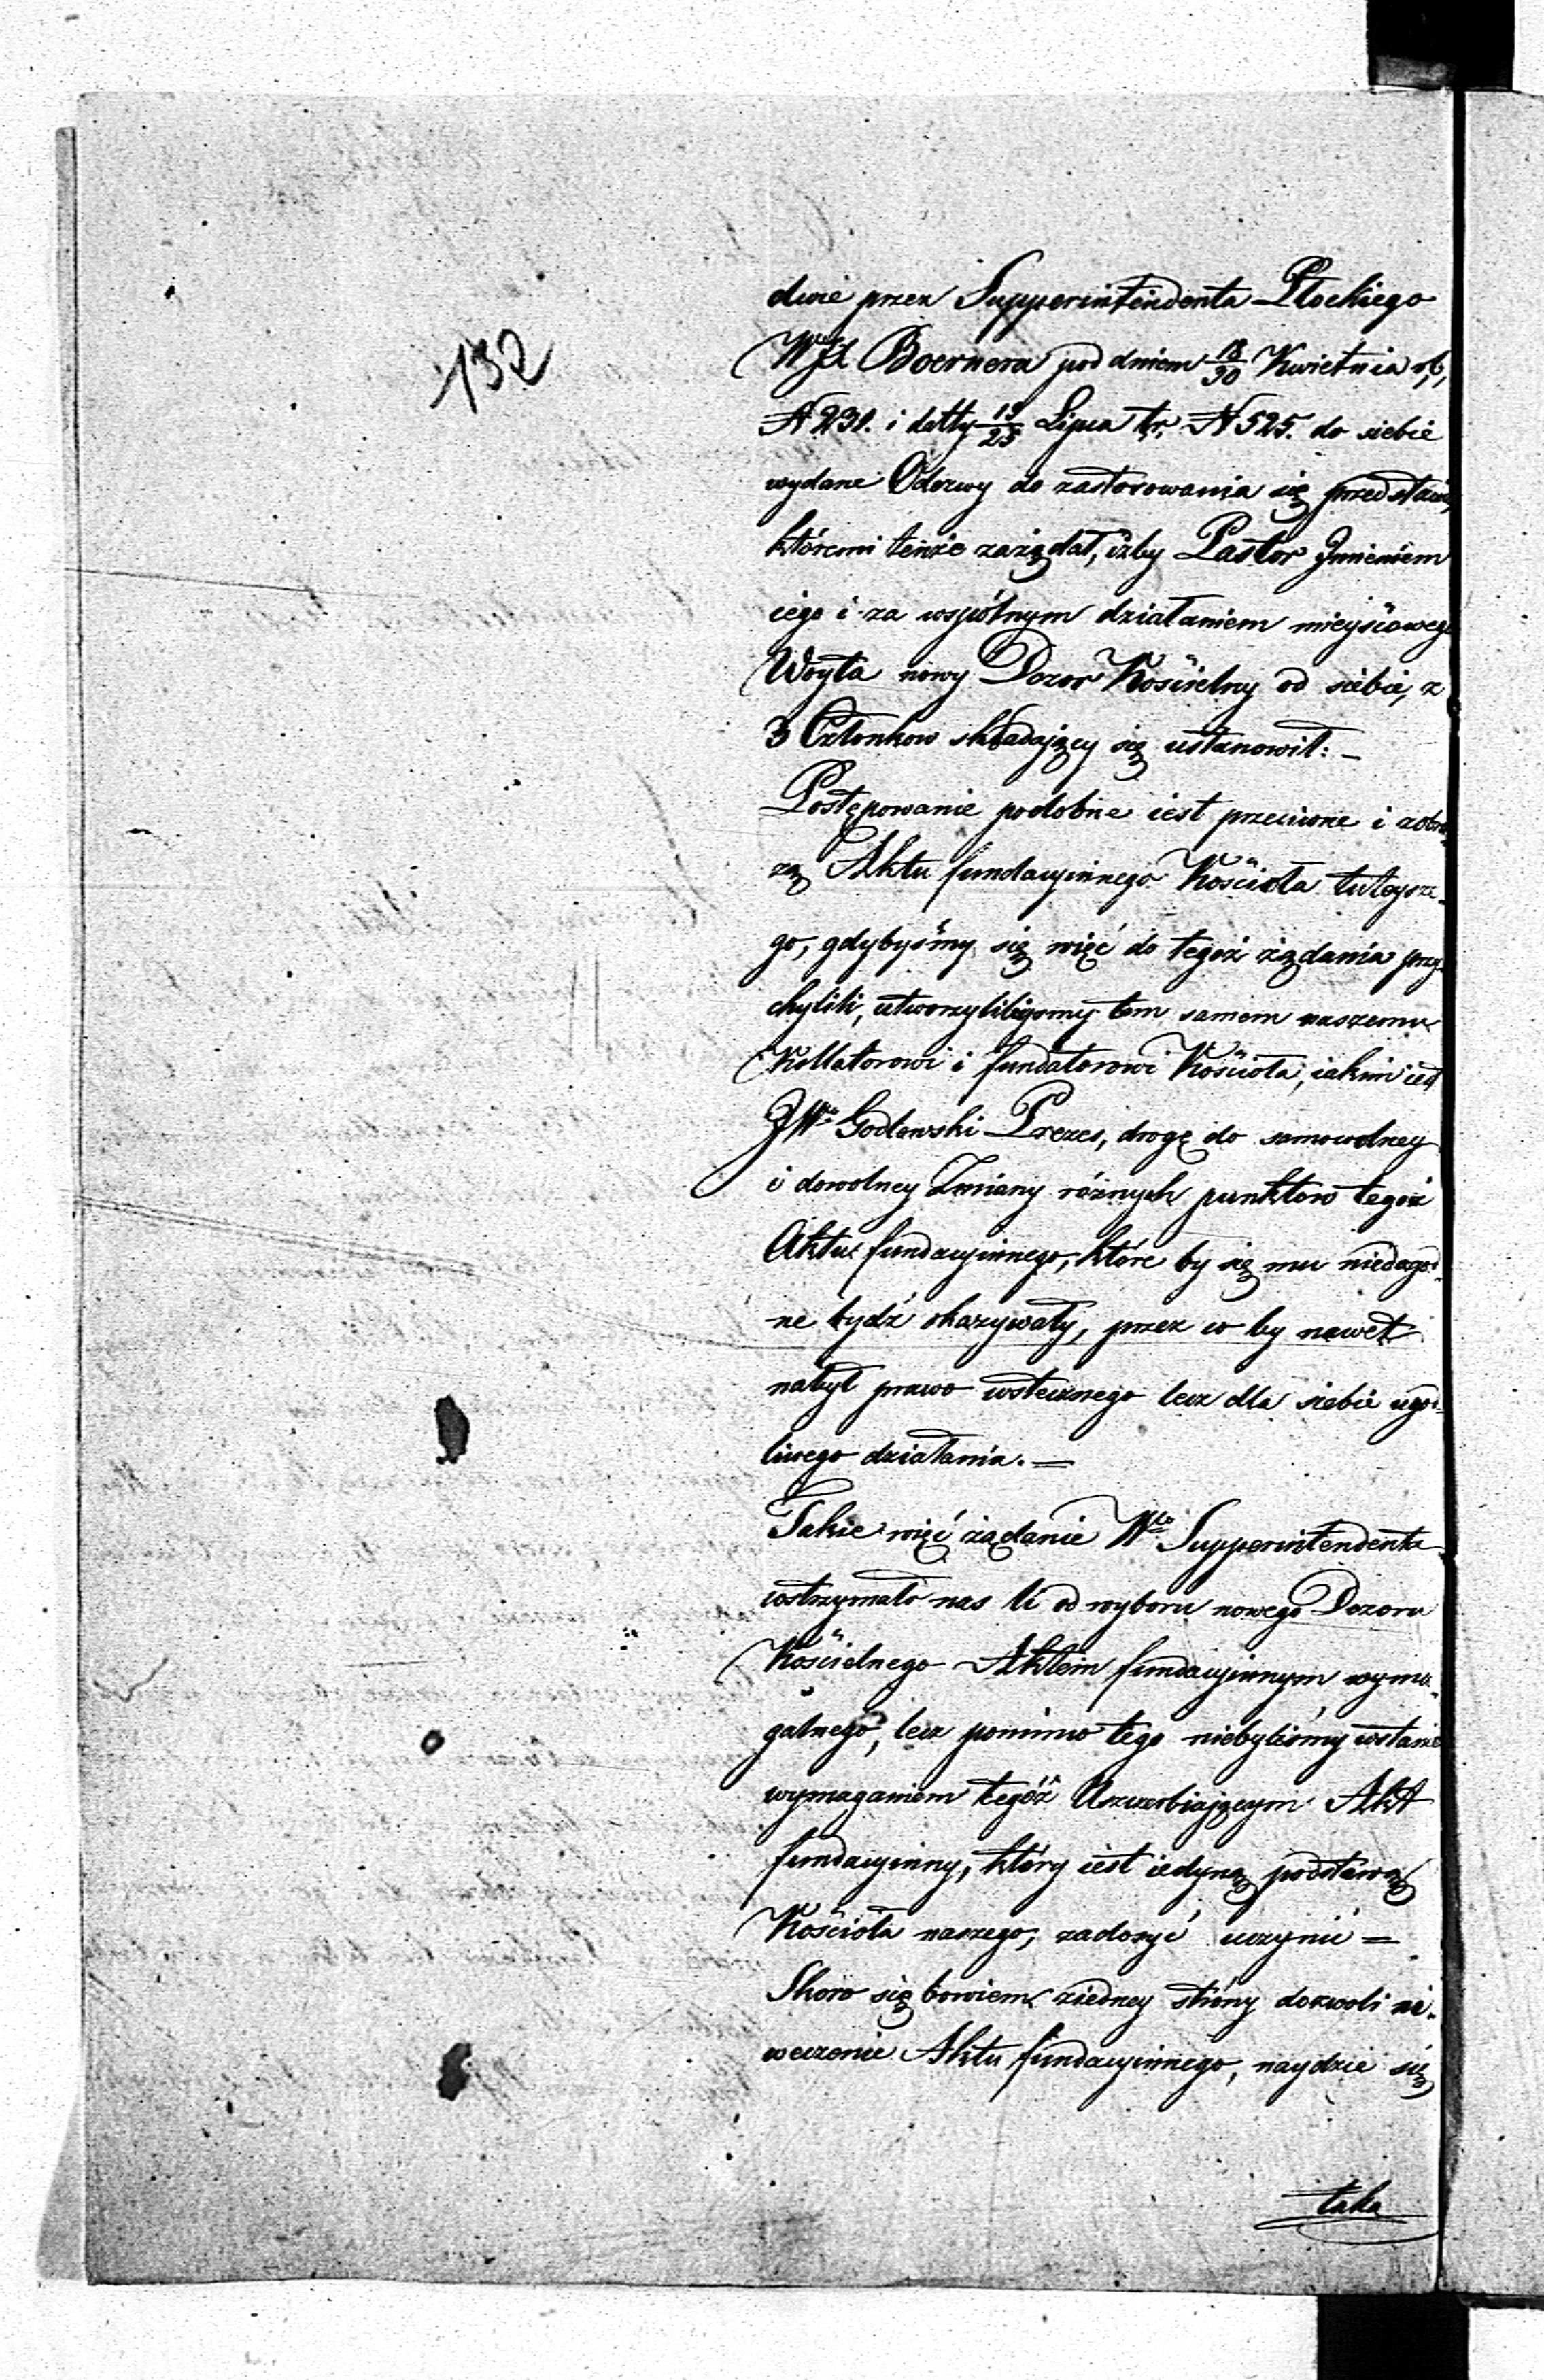 132
dwie przez Supperintendenta Płockiego
Boernera pod dniem 18/30 Kwietnia r, b,
N 231. i detty 13/25 Lipca tr. N 525. do siebie
wydane Odezwy do zastosowania się przedstawił,
któremi tenże zażądał, iżby Pastor Jmieniem
iego i za wspólnym działaniem mieyscowego
Woyta nowy Dozor Kościelny od siebie, z
3 Członkow składaiący się ustanowił: –
Postępowanie podobne iest przeciwne i zobra-
zą Aktu fundacyinnego Kościoła tuteysze-
go, gdybyśmy się więć do tegoż żądania przy-
chylili, utworzylibyśmy tem samem naszemu
Kollatorowi i fundatorowi Kościoła, iakim iest
JW Godlewski Prezes, drogę do samowolney
i dowolney Zmiany różnych punktow tegoż
Aktu fundacyinnego, które by się mu niedago-
ne bydź okazywały, przez co by nawet
nabył prawo wstecznego lecz dla siebie ugod-
liwego działania. =
Takie więć żądanie Wgo Supperintendenta
wstrzymało nas li od wyboru nowego Dozoru
Kościelnego Aktem fundacyinnym wyma-
galnego, lecz pomimo tego niebyliśmy wstanie
wymaganiem tegóż Akt
fundacyinny, który iest iedyną podstawą
Kościoła naszego, zadosyć uczynić =
Skoro się bowiem ziedney stróny dozwoli ni-
weczenie Aktu fundacyinnego, naydzie się
taka